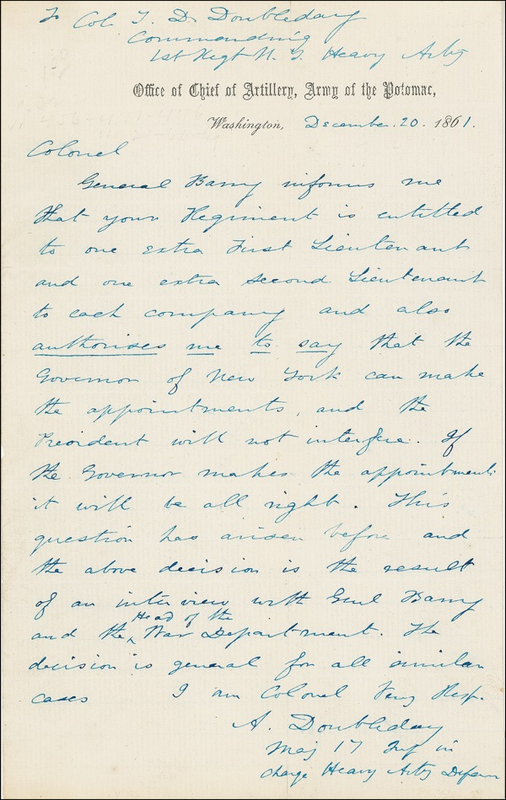 To Col. T. D. Doubleday
Commanding
1st Regt N. Y. Heavy Arty
Office of Chief of Artillery, Army of the Potomac,
Washington, December. 20. 1861.
Colonel
General Barry informs me
that your Regiment is entitled
to one extra First Lieutenant
and one extra second Lieutenant
to each company and also
authorises me to say that the
Governor of New York can make
the appointments, and the
President will not interfere. If
the Governor makes the appointments
it will be all right. This
question has arisen before and
the above decision is the result
of an interview with Genl Barry
Head of the
and the War Department. The
decision is general for all similar
cases I am Colonel Very Resp.
A. Doubleday
Maj 17 Inf in
charge Heavy Arty